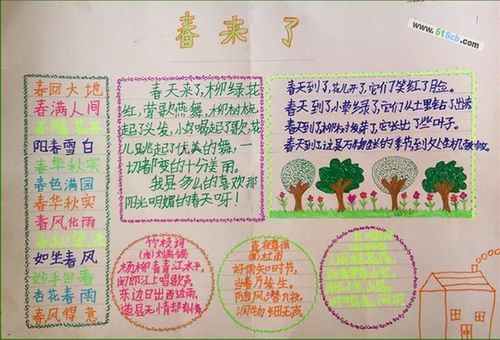 春来了
www.51Scb.com
春回大地
春满人间
春暖花开
阳春白雪
春华秋实
春色满园
春华秋实
春风化雨
如坐春风
妙手回春
杏花春雨
春风得意
春天来了,柳绿花
红,莺歌燕舞,柳树梳
起了头发,小鸟唱起了歌,花
儿跳起了优美的舞,一
切都变的十分美丽。
我是多么的喜欢那
阳光明媚的春天呀!
春天到了,花儿开了,它们笑红了脸。
春天到了,小草绿了,它们从土里钻了出来
春天到了,柳树发芽了,它张出了些叶子。
竹枝词
(唐)刘禹锡
杨柳青青江水平,
闻郎江上唱歌声。
东边日出西边雨,
道是无情却有情。
春夜喜雨
唐 杜甫
好雨知时节,
当春乃发生。
随风潜入夜,
润物细无声。